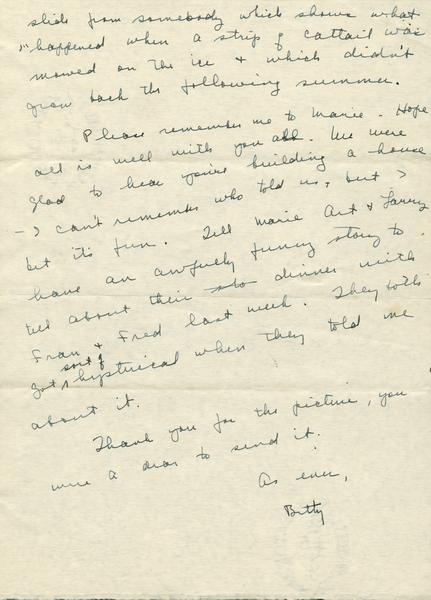 slide from somebody which shows what
happened when a strip of cattail was
mowed on the ice & which didn't
grow back the following summer.
Please remember me to Marie. Hope
all is well with you all. We were
glad to hear you're building a house
- I can't remember who told us, but I
bet it's fun. Tell Marie Art & Larry
have an awfully funny story to
tell about their dinner with
Fran & Fred last week. They both
got sort of hysterical when they told me
about it.
Thank you for the picture, you
were a dear to send it.
As ever,
Betty